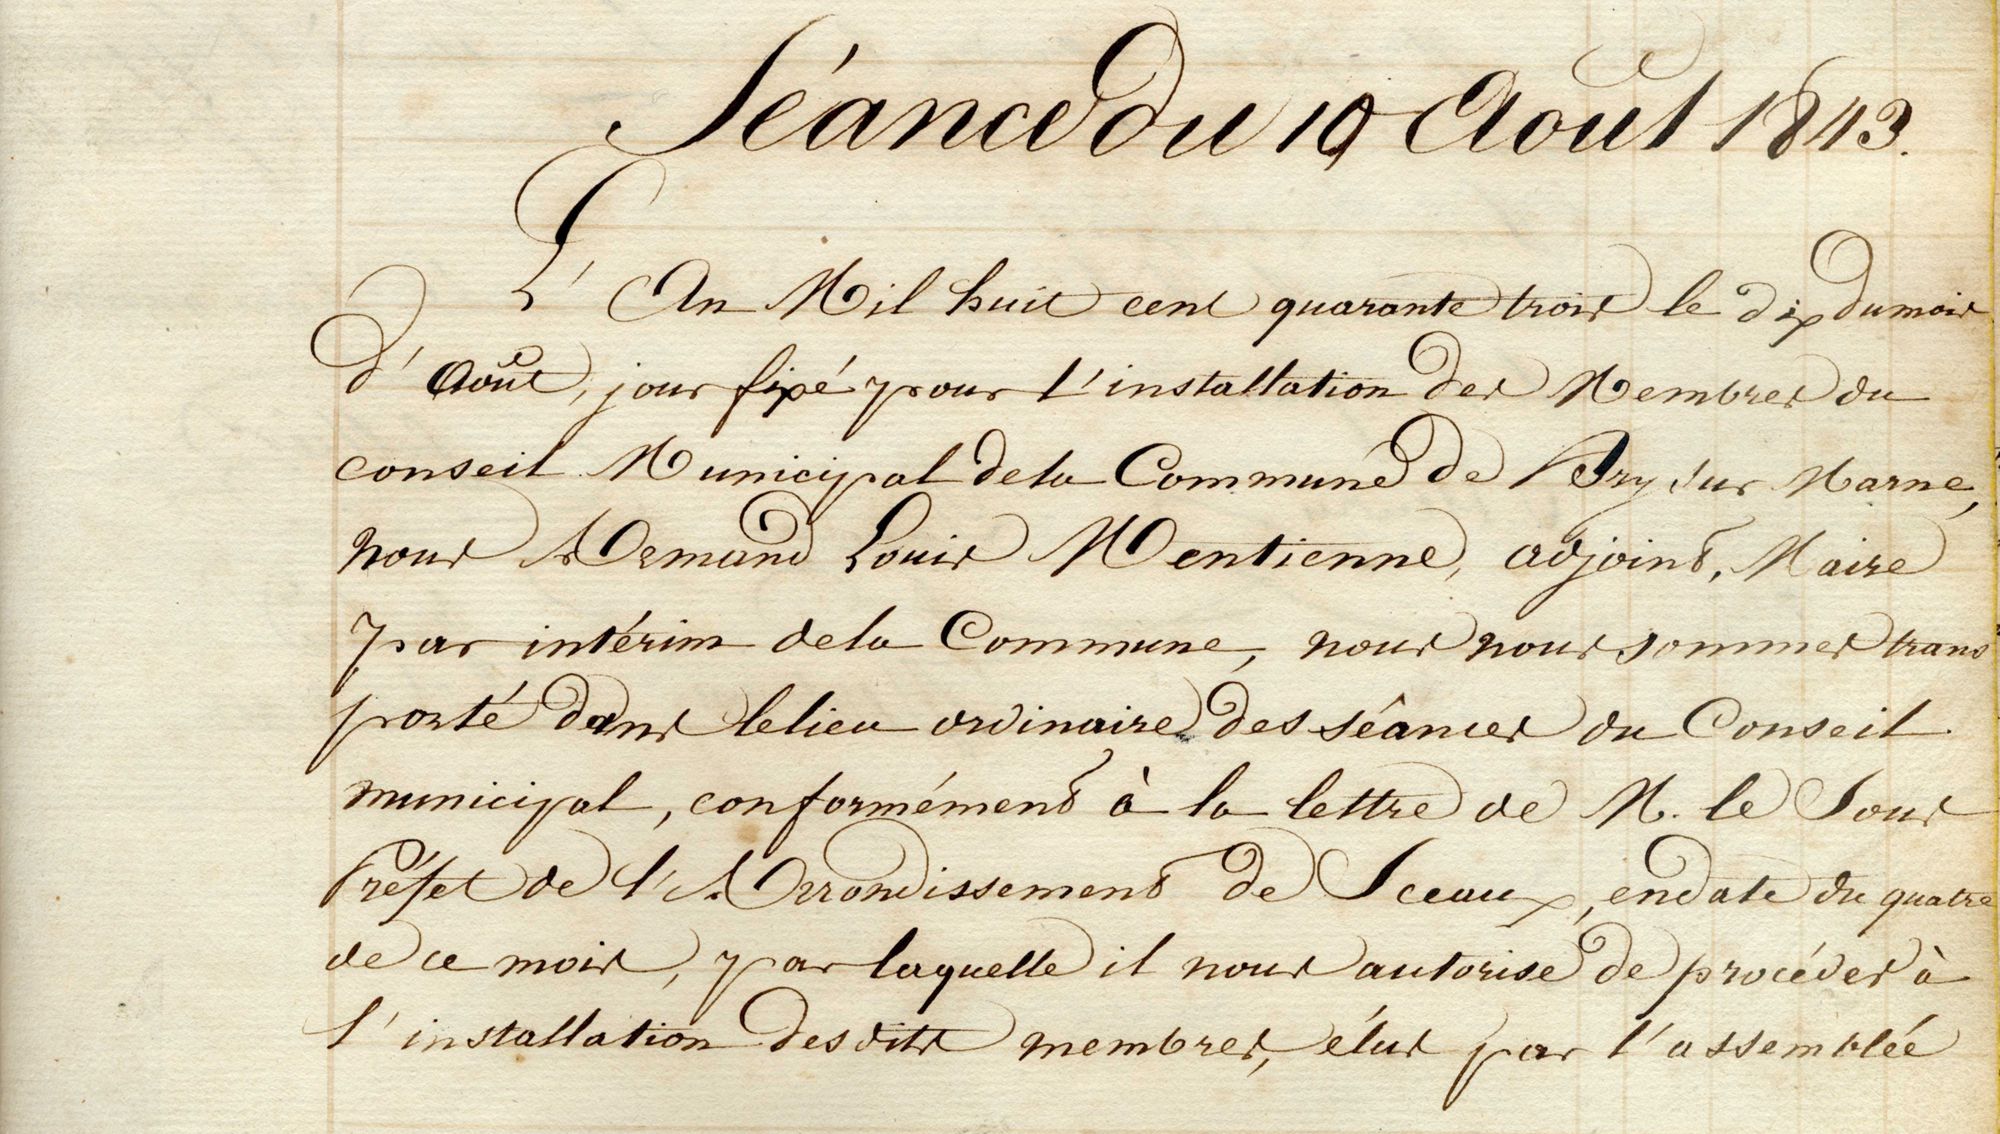 Séance du 10 Août 1843.
L'An Mil huit cent quarante trois le dix du mois
d'Août, jour fixé pour l'installation des Membres du
conseil Municipal de la Commune de Bry sur Marne,
nous Armand Louis Mentienne, adjoint, Maire
par intérim de la Commune, nous nous sommes trans
porté dans le lieu ordinaire des séances du Conseil
municipal, conformément à la lettre de M. le Sous
Préfet de l'Arrondissement de Sceaux, en date du quatre
de ce mois, par laquelle il nous autorise de procéder à
l'installation desdits membres, élus par l'assemblée